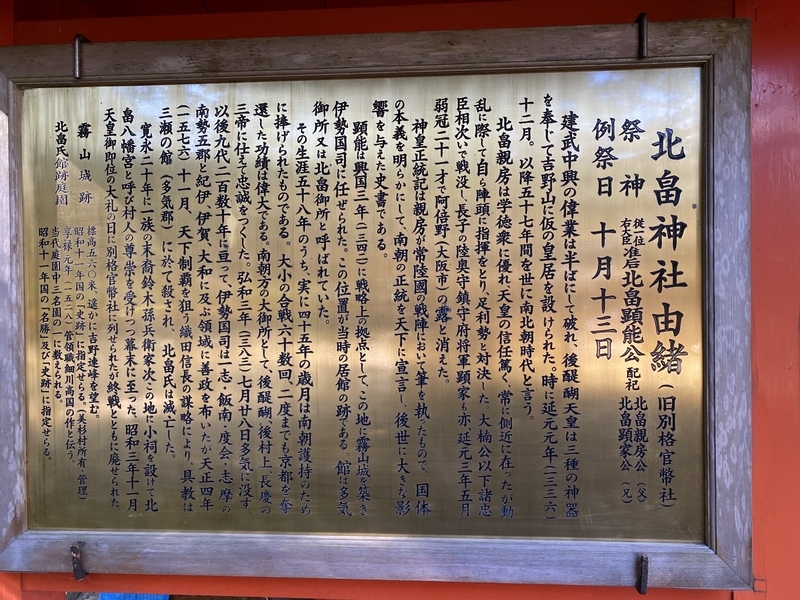 北畠神社由緒（旧別格官幣社）
祭神 従一位右大臣准后北畠顕能公 配祀 北畠親房公（父）北畠顕家公（兄）
例祭日 十月十三日
建武中興の偉業は半ばにして破れ、後醍醐天皇は三種の神器
を奉じて吉野山に仮の皇居を設けられた。時に延元元年（一三三六）
十二月。以降五十七年間を世に南北朝時代と言う。
北畠親房は学徳衆に優れ天皇の信任篤く、常に側近に在ったが動
乱に際して自ら陣頭に指揮をとり、足利勢と対決した。大楠公以下諸忠
臣相次いで戦没し、長子の陸奥守鎮守府将軍顕家も亦、延元三年五月
弱冠二十一才で阿倍野（大阪市）の露と消えた。
神皇正統記は親房が常陸國の戦陣において筆を執ったもので、国体
の本義を明らかにして、南朝の正統を天下に宣言し、後世に大きな影
響を与えた史書である。
顕能は興国三年（一三四二）に戦略上の拠点として、この地に霧山城を築き
伊勢国司に任ぜられた。この位置が当時の居館の跡である。館は多気
御所又は北畠御所と呼ばれていた。
その生涯五十八年のうち、実に四十五年の歳月は南朝護持のため
に捧げられたものである。大小の合戦六十数回、二度までも京都を奪
還した功績は偉大である。南朝方の大御所として、後醍醐、後村上、長慶の
三帝に仕えて忠誠をつくした。弘和三年（一三八三）七月廿八日多気に没す。
以後九代二百数十年に亘って、伊勢国司は一志・飯南・度会・志摩の
南勢五郡と紀伊、伊賀、大和に及ぶ領域に善政を布いたが天正四年
（一五七六）十一月、天下制覇を狙う織田信長の謀略により、具教は
三瀬の館（多気郡）に於て殺され、北畠氏は滅亡した。
寛永二十年に一族の末裔鈴木孫兵衛家次この地に小祠を設けて北
畠八幡宮と呼び村人の尊崇を受けつつ幕末に至った。昭和三年十一月
天皇御即位の大礼の日に別格官幣社に列せられたが終戦とともに廃せられた。
霧山城跡 標高五六〇米、遙かに吉野連峰を望む。
昭和十一年国の「史跡」に指定せらる。（美杉村所有・管理）
北畠氏館跡庭園 享禄元年（一五二八）管領職細川高国の作と伝う。
当代庭園中三名園の一に数えられる。
昭和十一年国の「名勝」及び「史跡」に指定せらる。